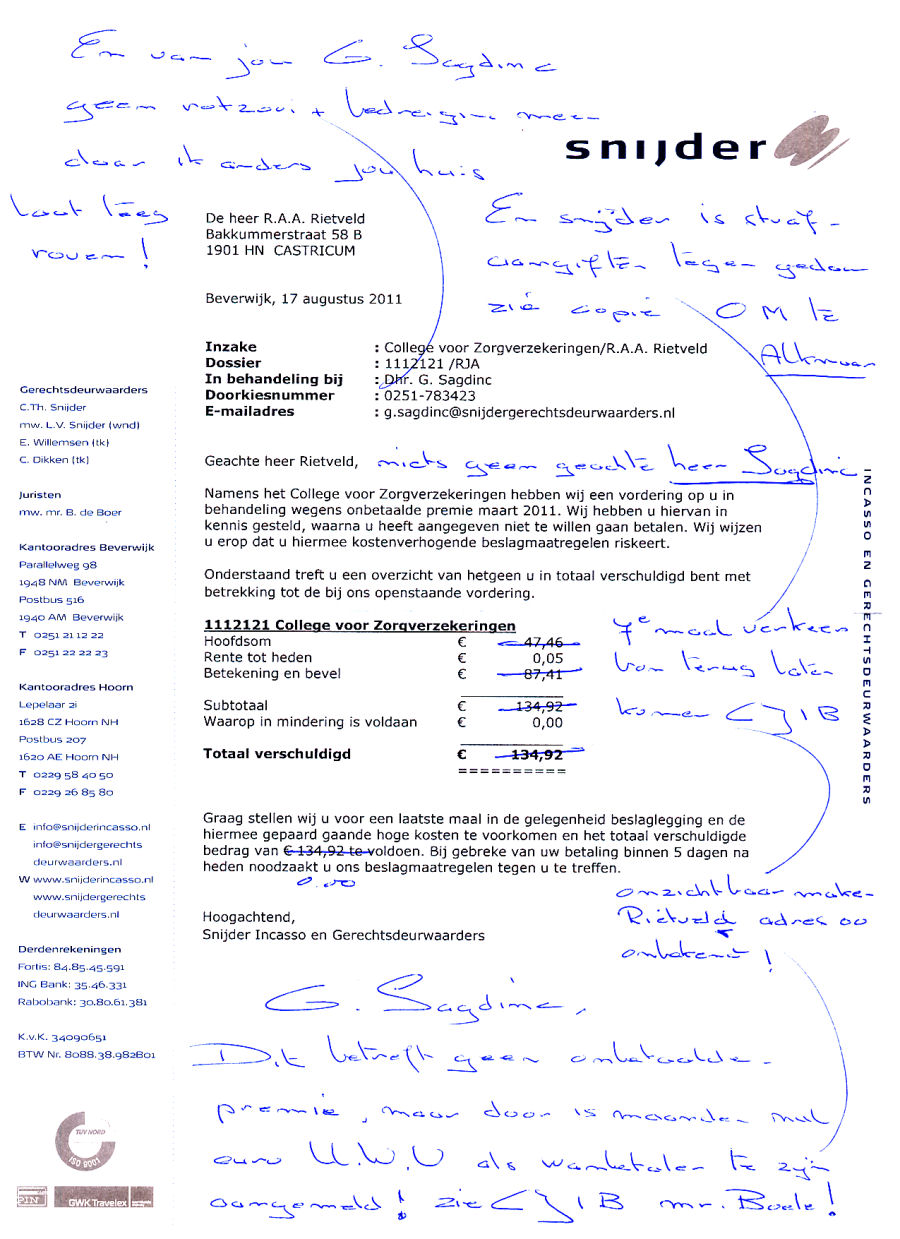 En van jou G. Sagdinc
geen rotzooi + bedreiging meer
daar ik anders jou huis
laat leeg
roven!
snijder
En snijder is straf-
aangiften tegen gedaan
zie copie OM te
Alkmaar
De heer R.A.A. Rietveld
Bakkummerstraat 58 B
1901 HN CASTRICUM
Beverwijk, 17 augustus 2011
Inzake : College voor Zorgverzekeringen/R.A.A. Rietveld
Dossier : 1112121 /RJA
In behandeling bij : Dhr. G. Sagdinc
Doorkiesnummer : 0251-783423
E-mailadres : g.sagdinc@snijdergerechtsdeurwaarders.nl
Geachte heer Rietveld, niets geen geachte heer Sagdinc
Namens het College voor Zorgverzekeringen hebben wij een vordering op u in
behandeling wegens onbetaalde premie maart 2011. Wij hebben u hiervan in
kennis gesteld, waarna u heeft aangegeven niet te willen gaan betalen. Wij wijzen
u erop dat u hiermee kostenverhogende beslagmaatregelen riskeert.
Onderstaand treft u een overzicht van hetgeen u in totaal verschuldigd bent met
betrekking tot de bij ons openstaande vordering.
1112121 College voor Zorgverzekeringen
Hoofdsom € 47,46
Rente tot heden € 0,05
Betekening en bevel € 87,41
Subtotaal € 134,92
Waarop in mindering is voldaan € 0,00
Totaal verschuldigd € 134,92
==========
7e maal verkeer
van terug laten
komen CJIB
Graag stellen wij u voor een laatste maal in de gelegenheid beslaglegging en de
hiermee gepaard gaande hoge kosten te voorkomen en het totaal verschuldigde
bedrag van € 134,92 te voldoen. Bij gebreke van uw betaling binnen 5 dagen na
heden noodzaakt u ons beslagmaatregelen tegen u te treffen.
0.00
onzichtbaar make-
Rietveld adres
onbekent!
Hoogachtend,
Snijder Incasso en Gerechtsdeurwaarders
G. Sagdinc,
Dit betreft geen onbetaalde-
premie, maar door 15 maanden nul
euro U.W.V als wanbetaler te zijn
aangemeld! zie CJIB mr. Boele!
Gerechtsdeurwaarders
C.Th. Snijder
mw. L.V. Snijder (wnd)
E. Willemsen (tk)
C. Dikken (tk)
Juristen
mw. mr. B. de Boer
Kantooradres Beverwijk
Parallelweg 98
1948 NM Beverwijk
Postbus 516
1940 AM Beverwijk
T 0251 21 12 22
F 0251 22 22 23
Kantooradres Hoorn
Lepelaar 2i
1628 CZ Hoorn NH
Postbus 207
1620 AE Hoorn NH
T 0229 58 40 50
F 0229 26 85 80
E info@snijderincasso.nl
info@snijdergerechts
deurwaarders.nl
W www.snijderincasso.nl
www.snijdergerechts
deurwaarders.nl
Derdenrekeningen
Fortis: 84.85.45.591
ING Bank: 35.46.331
Rabobank: 30.80.61.381
K.v.K. 34090651
BTW Nr. 8088.38.982B01
TUV NORD
ISO 9001
PIN
GWK Travelex
INCASSO EN GERECHTSDEURWAARDERS